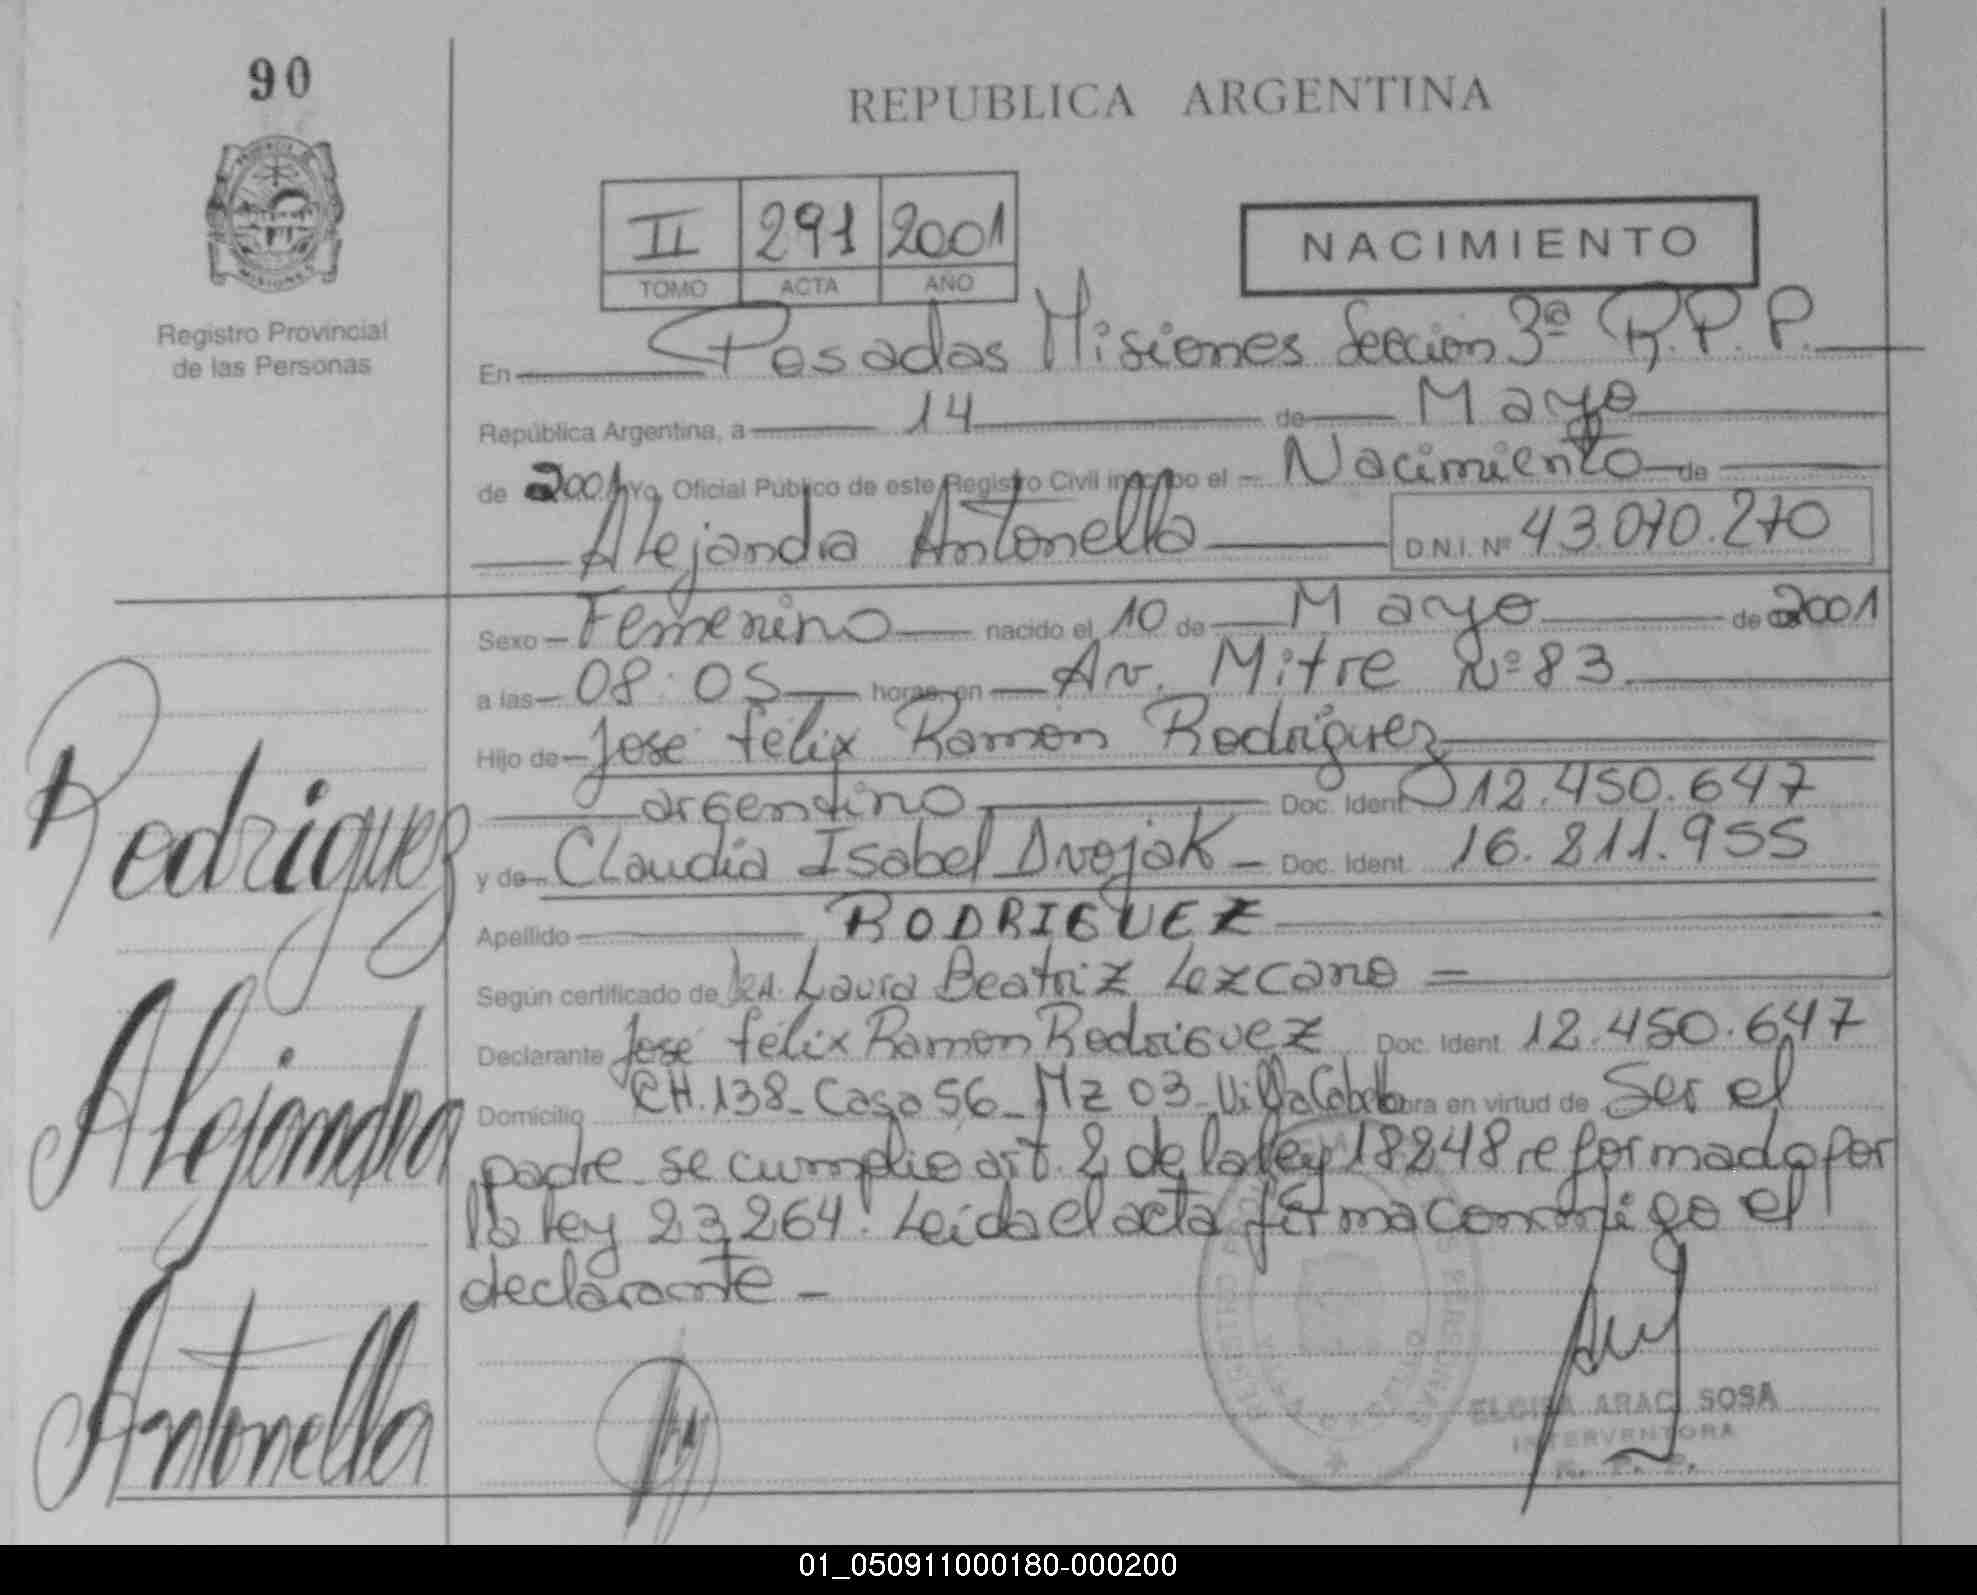 90
REPUBLICA ARGENTINA
II 291 2001
TOMO ACTA AÑO
NACIMIENTO
Registro Provincial
de las Personas
En Posadas Misiones Seccion 3ª R.P.P.
República Argentina, a 14 de Mayo
de 2001 Yo, Oficial Público de este Registro Civil inscribo el Nacimiento de
Alejandra Antonella D.N.I. Nº 43.070.270
Sexo Femenino nacido el 10 de Mayo de 2001
a las 08:05 horas, en Av. Mitre Nº 83
Hijo de José Félix Ramon Rodriguez
argentino Doc. Ident. 12.450.647
y de Claudia Isabel Dvojak Doc. Ident. 16.811.955
Apellido RODRIGUEZ
Según certificado de Laura Beatriz Lezcano
Declarante José Félix Ramon Rodriguez Doc. Ident. 12.450.647
Domicilio CH.138-Casa 56-Mz 03-Villa Cabello obra en virtud de Ser el
padre se cumplio art. 2 de la ley 18248 reformado por
la ley 23264. Leida el acta firma conmigo el
declarante -
Rodriguez
Alejandra
Antonella
SOSA
INTERVENTORA
R. P. P.
01_050911000180-000200